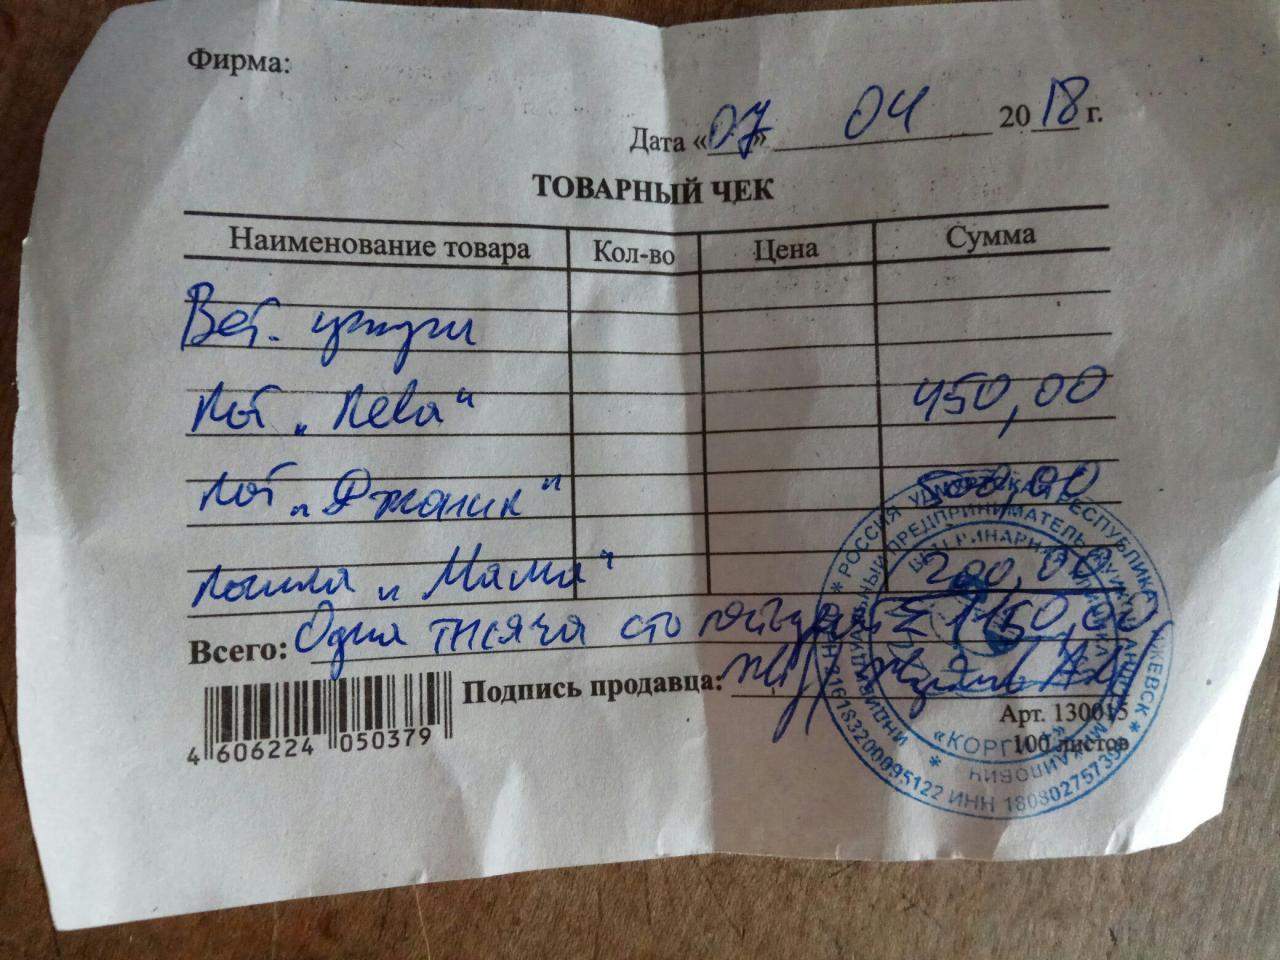 Фирма:
Дата «07» 04 2018 г.
ТОВАРНЫЙ ЧЕК
Наименование товара Кол-во Цена Сумма
Вет. услуги
Кот „Лева“ 450,00
Кот „Джаник“ 500,00
Кошка „Мама“ 200,00
Всего: Одна тысяча сто пятьдесят Σ 1150,00
Подпись продавца:
Арт. 130015
100 листов
4 606224 050379
* РОССИЯ УДМУРТСКАЯ РЕСПУБЛИКА
ИНДИВИДУАЛЬНЫЙ ПРЕДПРИНИМАТЕЛЬ
«КОРГИ»
ИЖЕВСК *